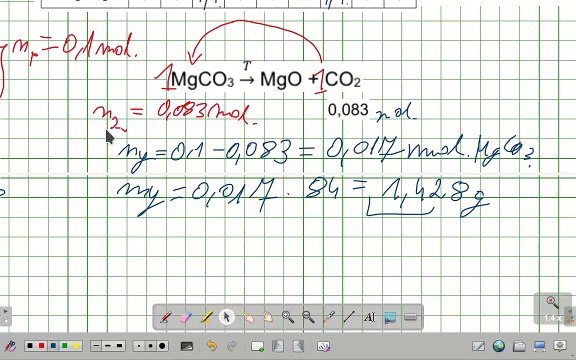 n₁ = 0,1 mol.
1MgCO₃ →T MgO + 1CO₂
n₂ = 0,083 mol. 0,083 mol.
ny = 0,1 - 0,083 = 0,017 mol. MgCO₃
my = 0,017 · 84 = 1,428g